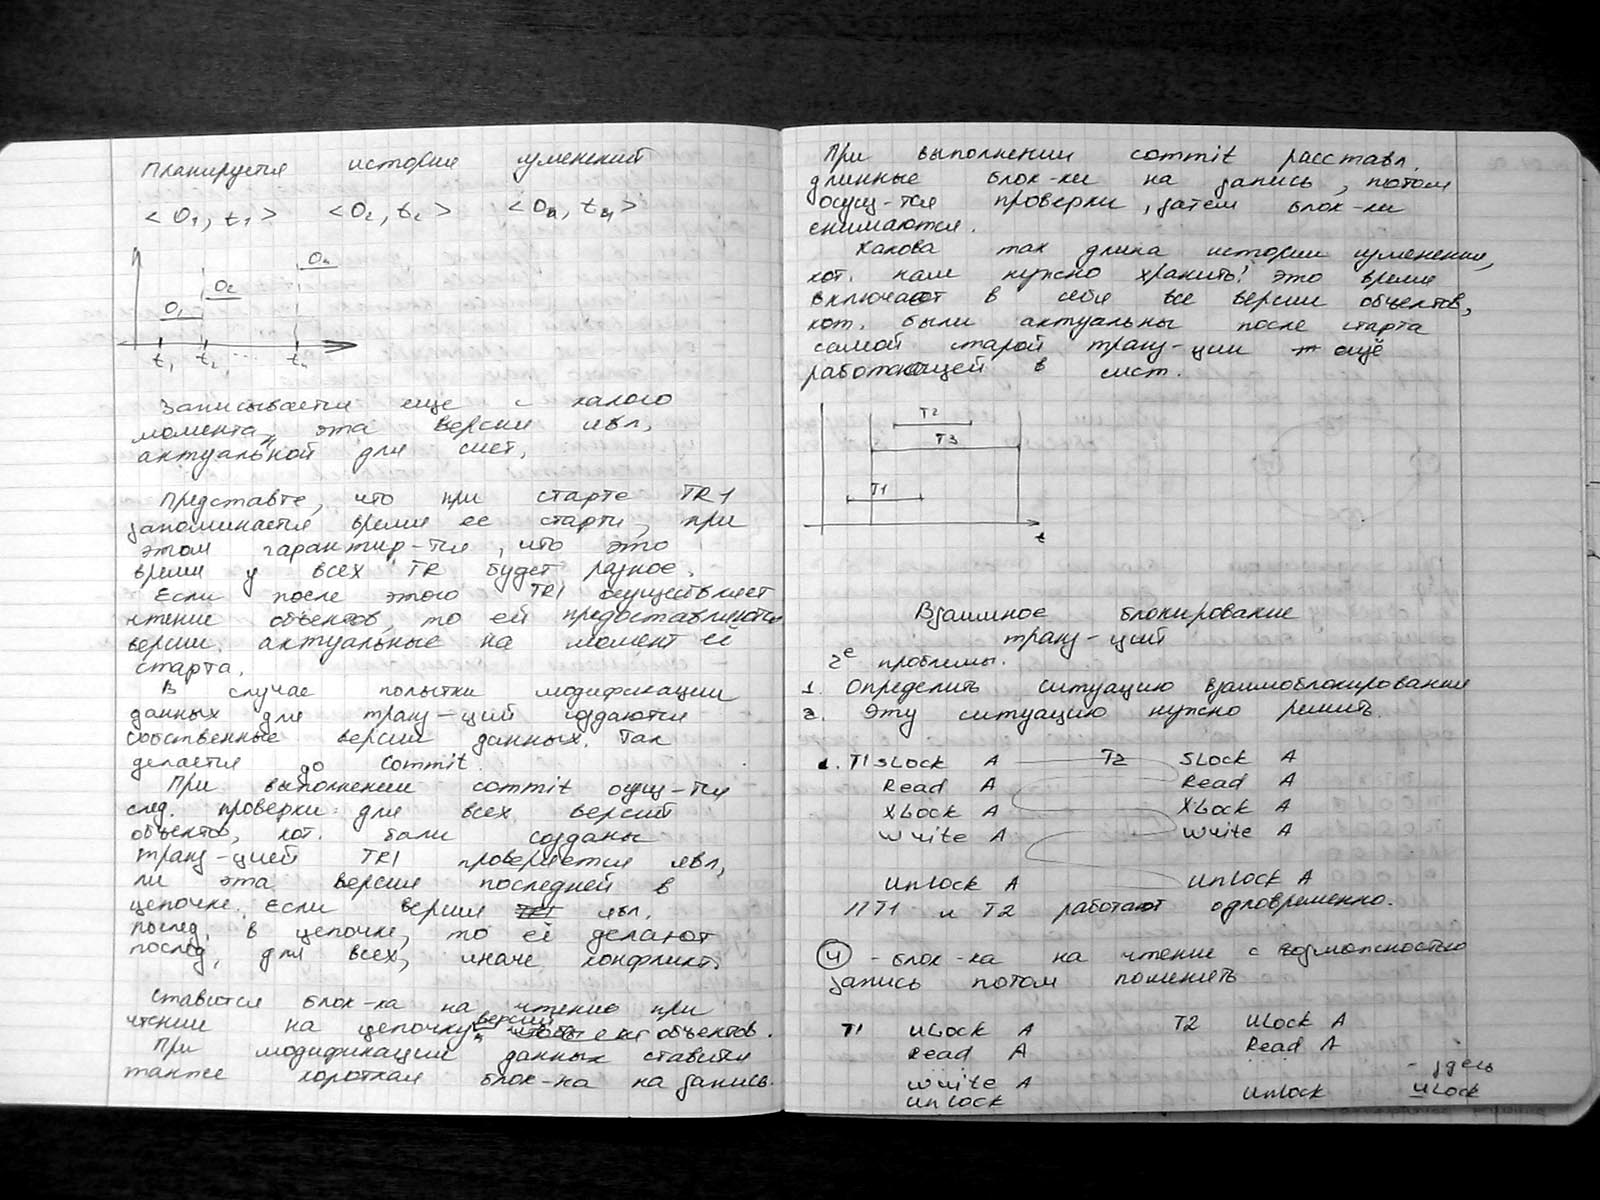 Планируется история изменений
<O1, t1> <O2, t2> <On, tn>
On
O2
O1
t1 t2 ... tn
Записывается еще с какого
момента эта версия явл.
актуальной для сист.
Представте, что при старте TR1
запоминается время ее старта, при
этом гарантир-тся, что это
время у всех TR будет разное.
Если после этого TR1 осуществляет
чтение объектов, то ей предоставляются
версии актуальные на момент её
старта.
В случае попытки модификации
данных для транз-ций создаются
собственные версии данных. Так
делается до commit.
При выполнении commit осущ-тся
след. проверки: для всех версий
объектов, кот. были созданы
транз-цией TR1 проверяется явл,
ли эта версия последней в
цепочке. Если версия явл.
послед. в цепочке, то её делают
послед. для всех, иначе конфликт.
Ставится блок-ка на чтение при
чтении на цепочку версий объектов.
При модификации данных ставится
также короткая блок-ка на запись.
При выполнении commit расставл.
длинные блок-ки на запись, потом
осущ-тся проверки, затем блок-ки
снимаются.
Какова так длина истории изменения,
кот. нам нужно хранить? это время
включает в себя все версии объектов,
кот. были актуальны после старта
самой старой транз-ции ещё
работающей в сист.
T2
T3
T1
t
Взаимное блокирование
транз-ций
2е проблемы.
1. Определить ситуацию взаимоблокирования
2. Эту ситуацию нужно решить.
1. T1 SLock A T2 SLock A
Read A Read A
XLock A XLock A
Write A Write A
Unlock A Unlock A
//T1 и T2 работают одновременно.
U - блок-ка на чтение с возможностью
запись потом поменять
T1 ULock A T2 ULock A
Read A Read A
- здесь
Write A
Unlock Unlock ULock